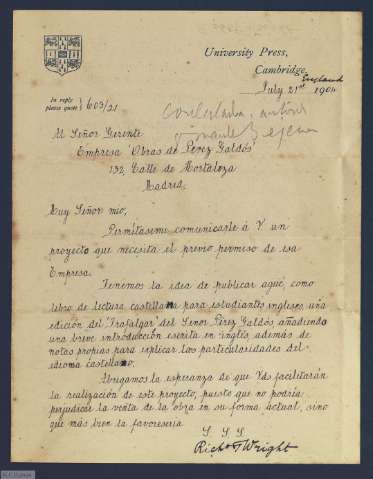 University Press,
Cambridge,
England
July 21st 1904
In reply
please quote } 603/21
contestada, autori
Al Señor Gerente
Empresa 'Obras de Pérez Galdós'
132, Calle de Hortaleza
Madrid,
Muy Señor mio,
Permítaseme comunicarle á V un
proyecto que necesita el previo permiso de esa
Empresa.
Tenemos la idea de publicar aquí, como
libro de lectura castellana para estudiantes ingleses una
edición del 'Trafalgar' del Señor Pérez Galdós, añadiendo
una breve introducción escrita en inglés además de
notas propias para replicar las particularidades del
idioma castellano.
Abrigamos la esperanza de que Vds facilitarán
la realización de este proyecto, puesto que no podría
perjudicar la venta de la obra en su forma actual, sino
que más bien la favorecería
S. S. S.
Richd T Wright